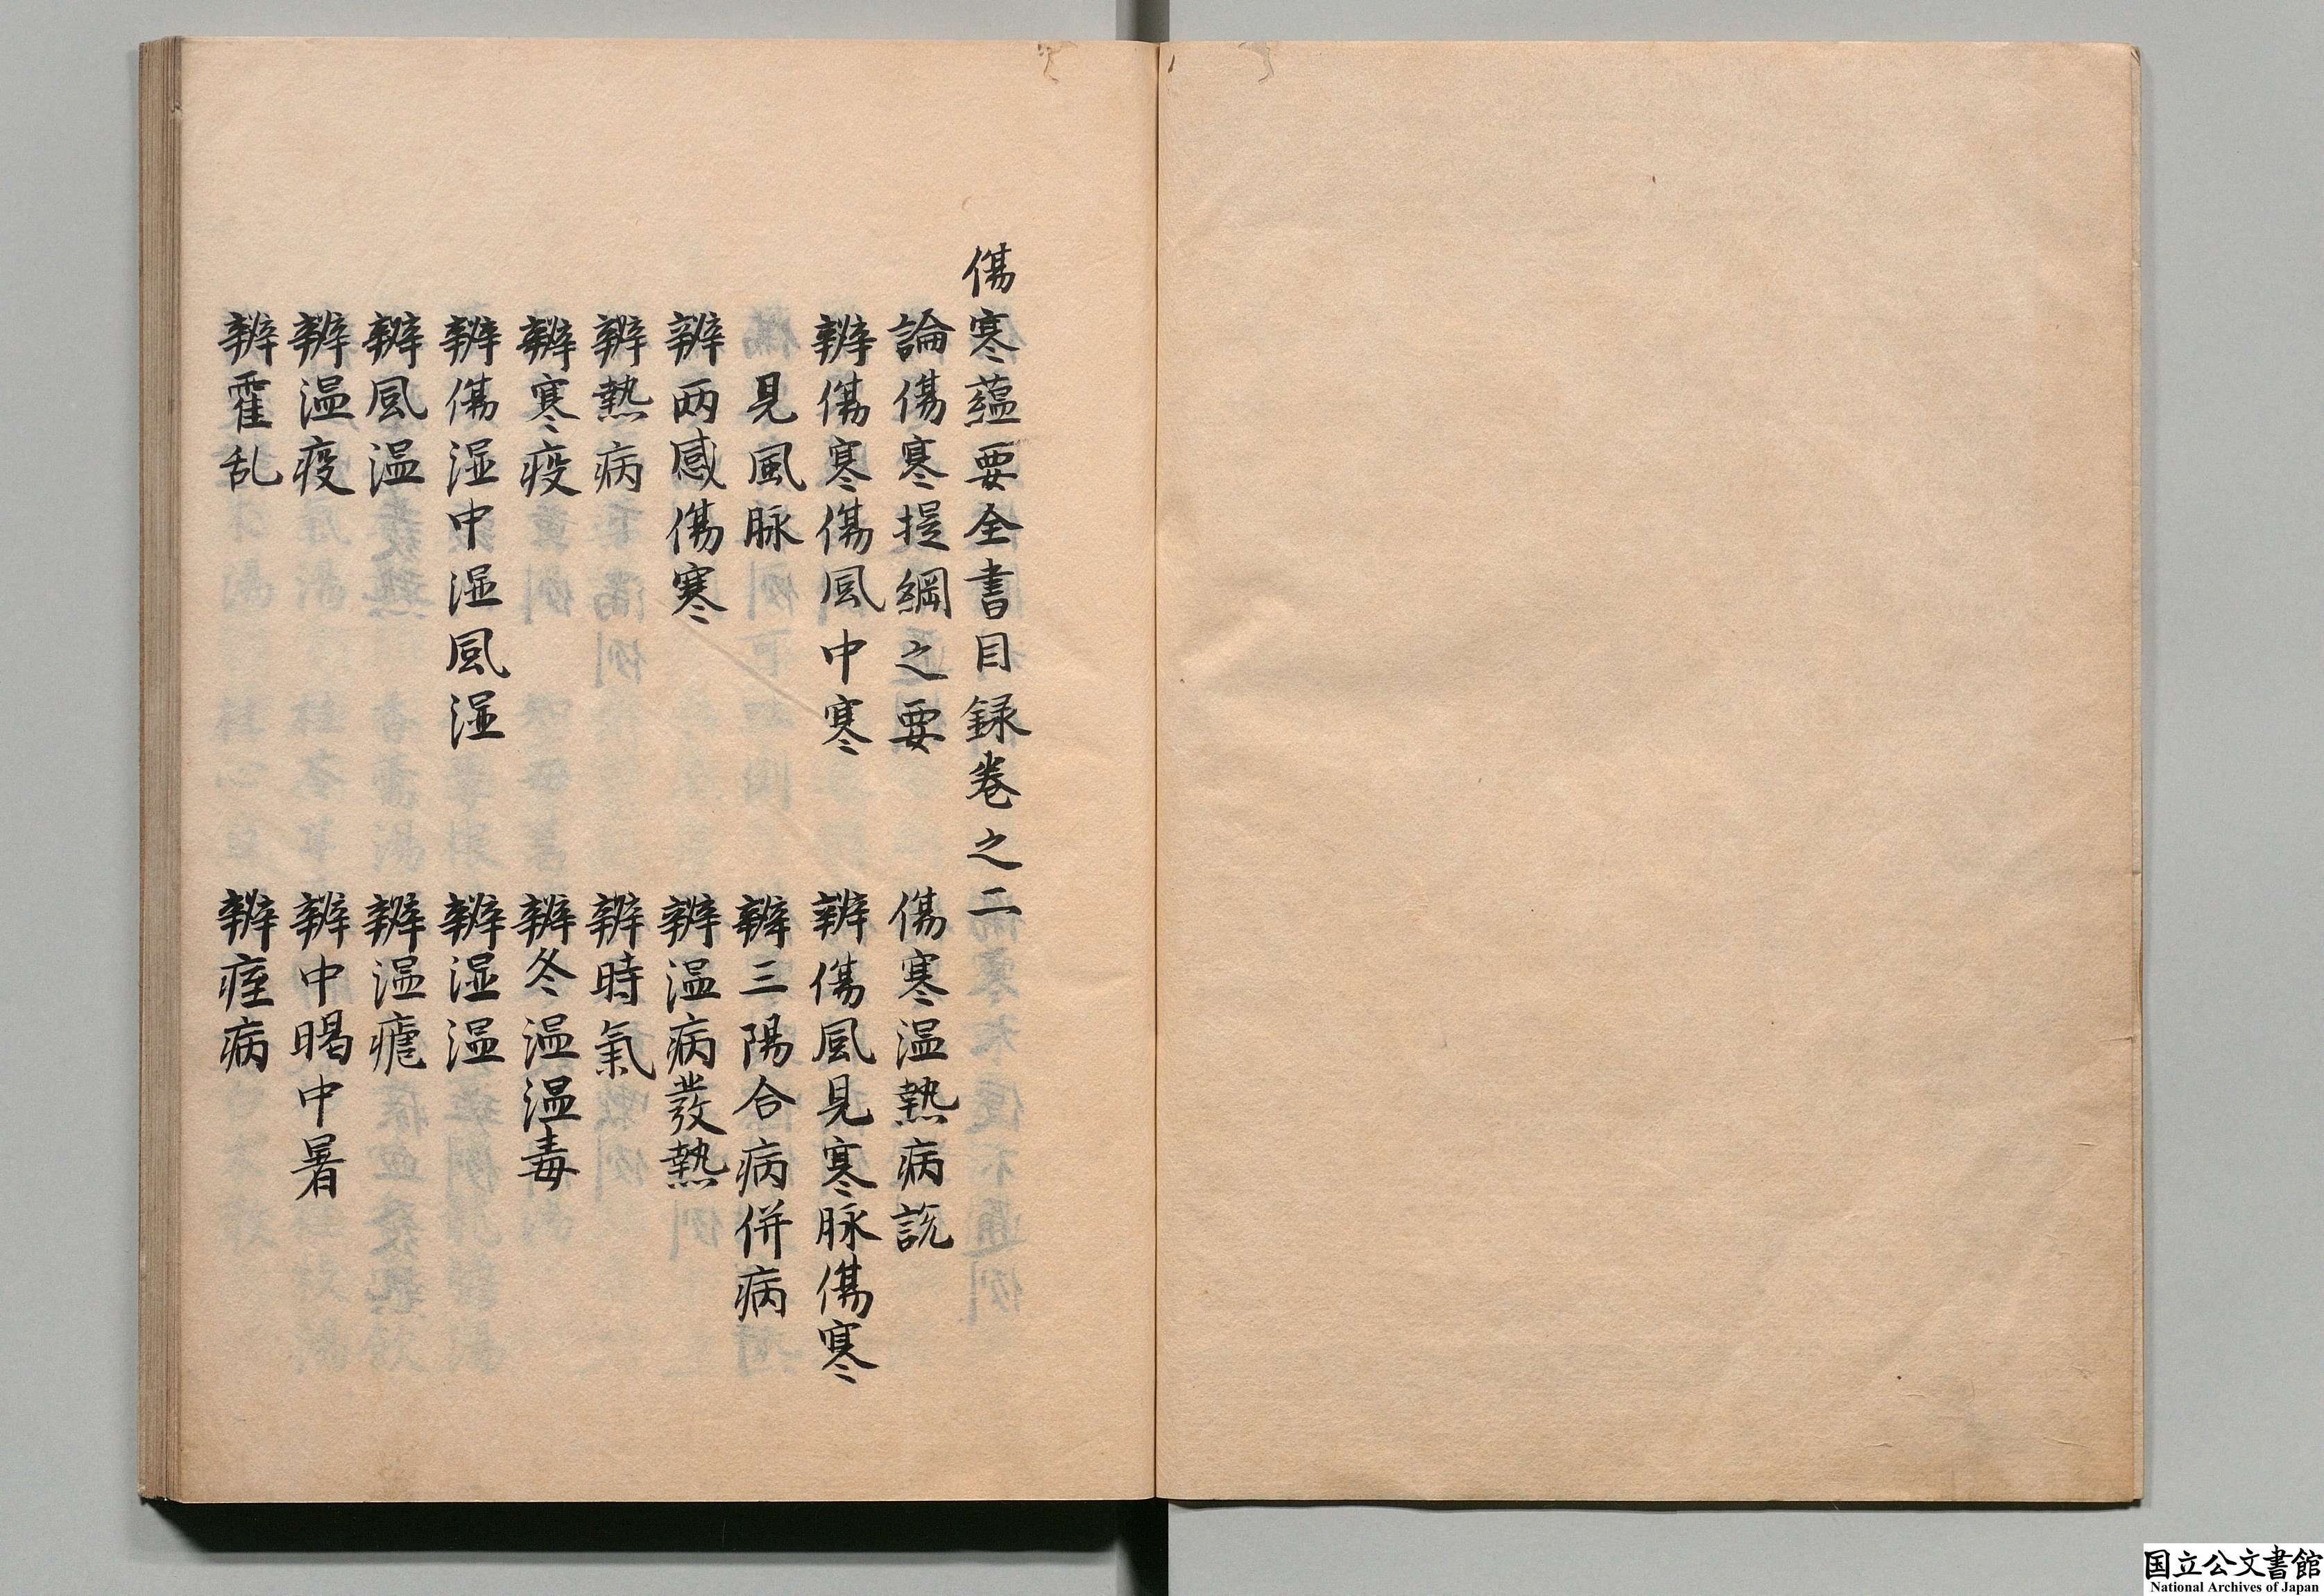 傷寒蕴要全書目録卷之二
論傷寒提綱之要　傷寒温熱病説
辨傷寒傷風中寒　辨傷風見寒脉傷寒
見風脉　辨三陽合病併病
辨兩感傷寒　辨温病發熱
辨熱病　辨時氣
辨寒疫　辨冬温温毒
辨傷湿中湿風湿　辨湿温
辨風温　辨温瘧
辨温疫　辨中暍中暑
辨霍乱　辨痓病
国立公文書館
National Archives of Japan